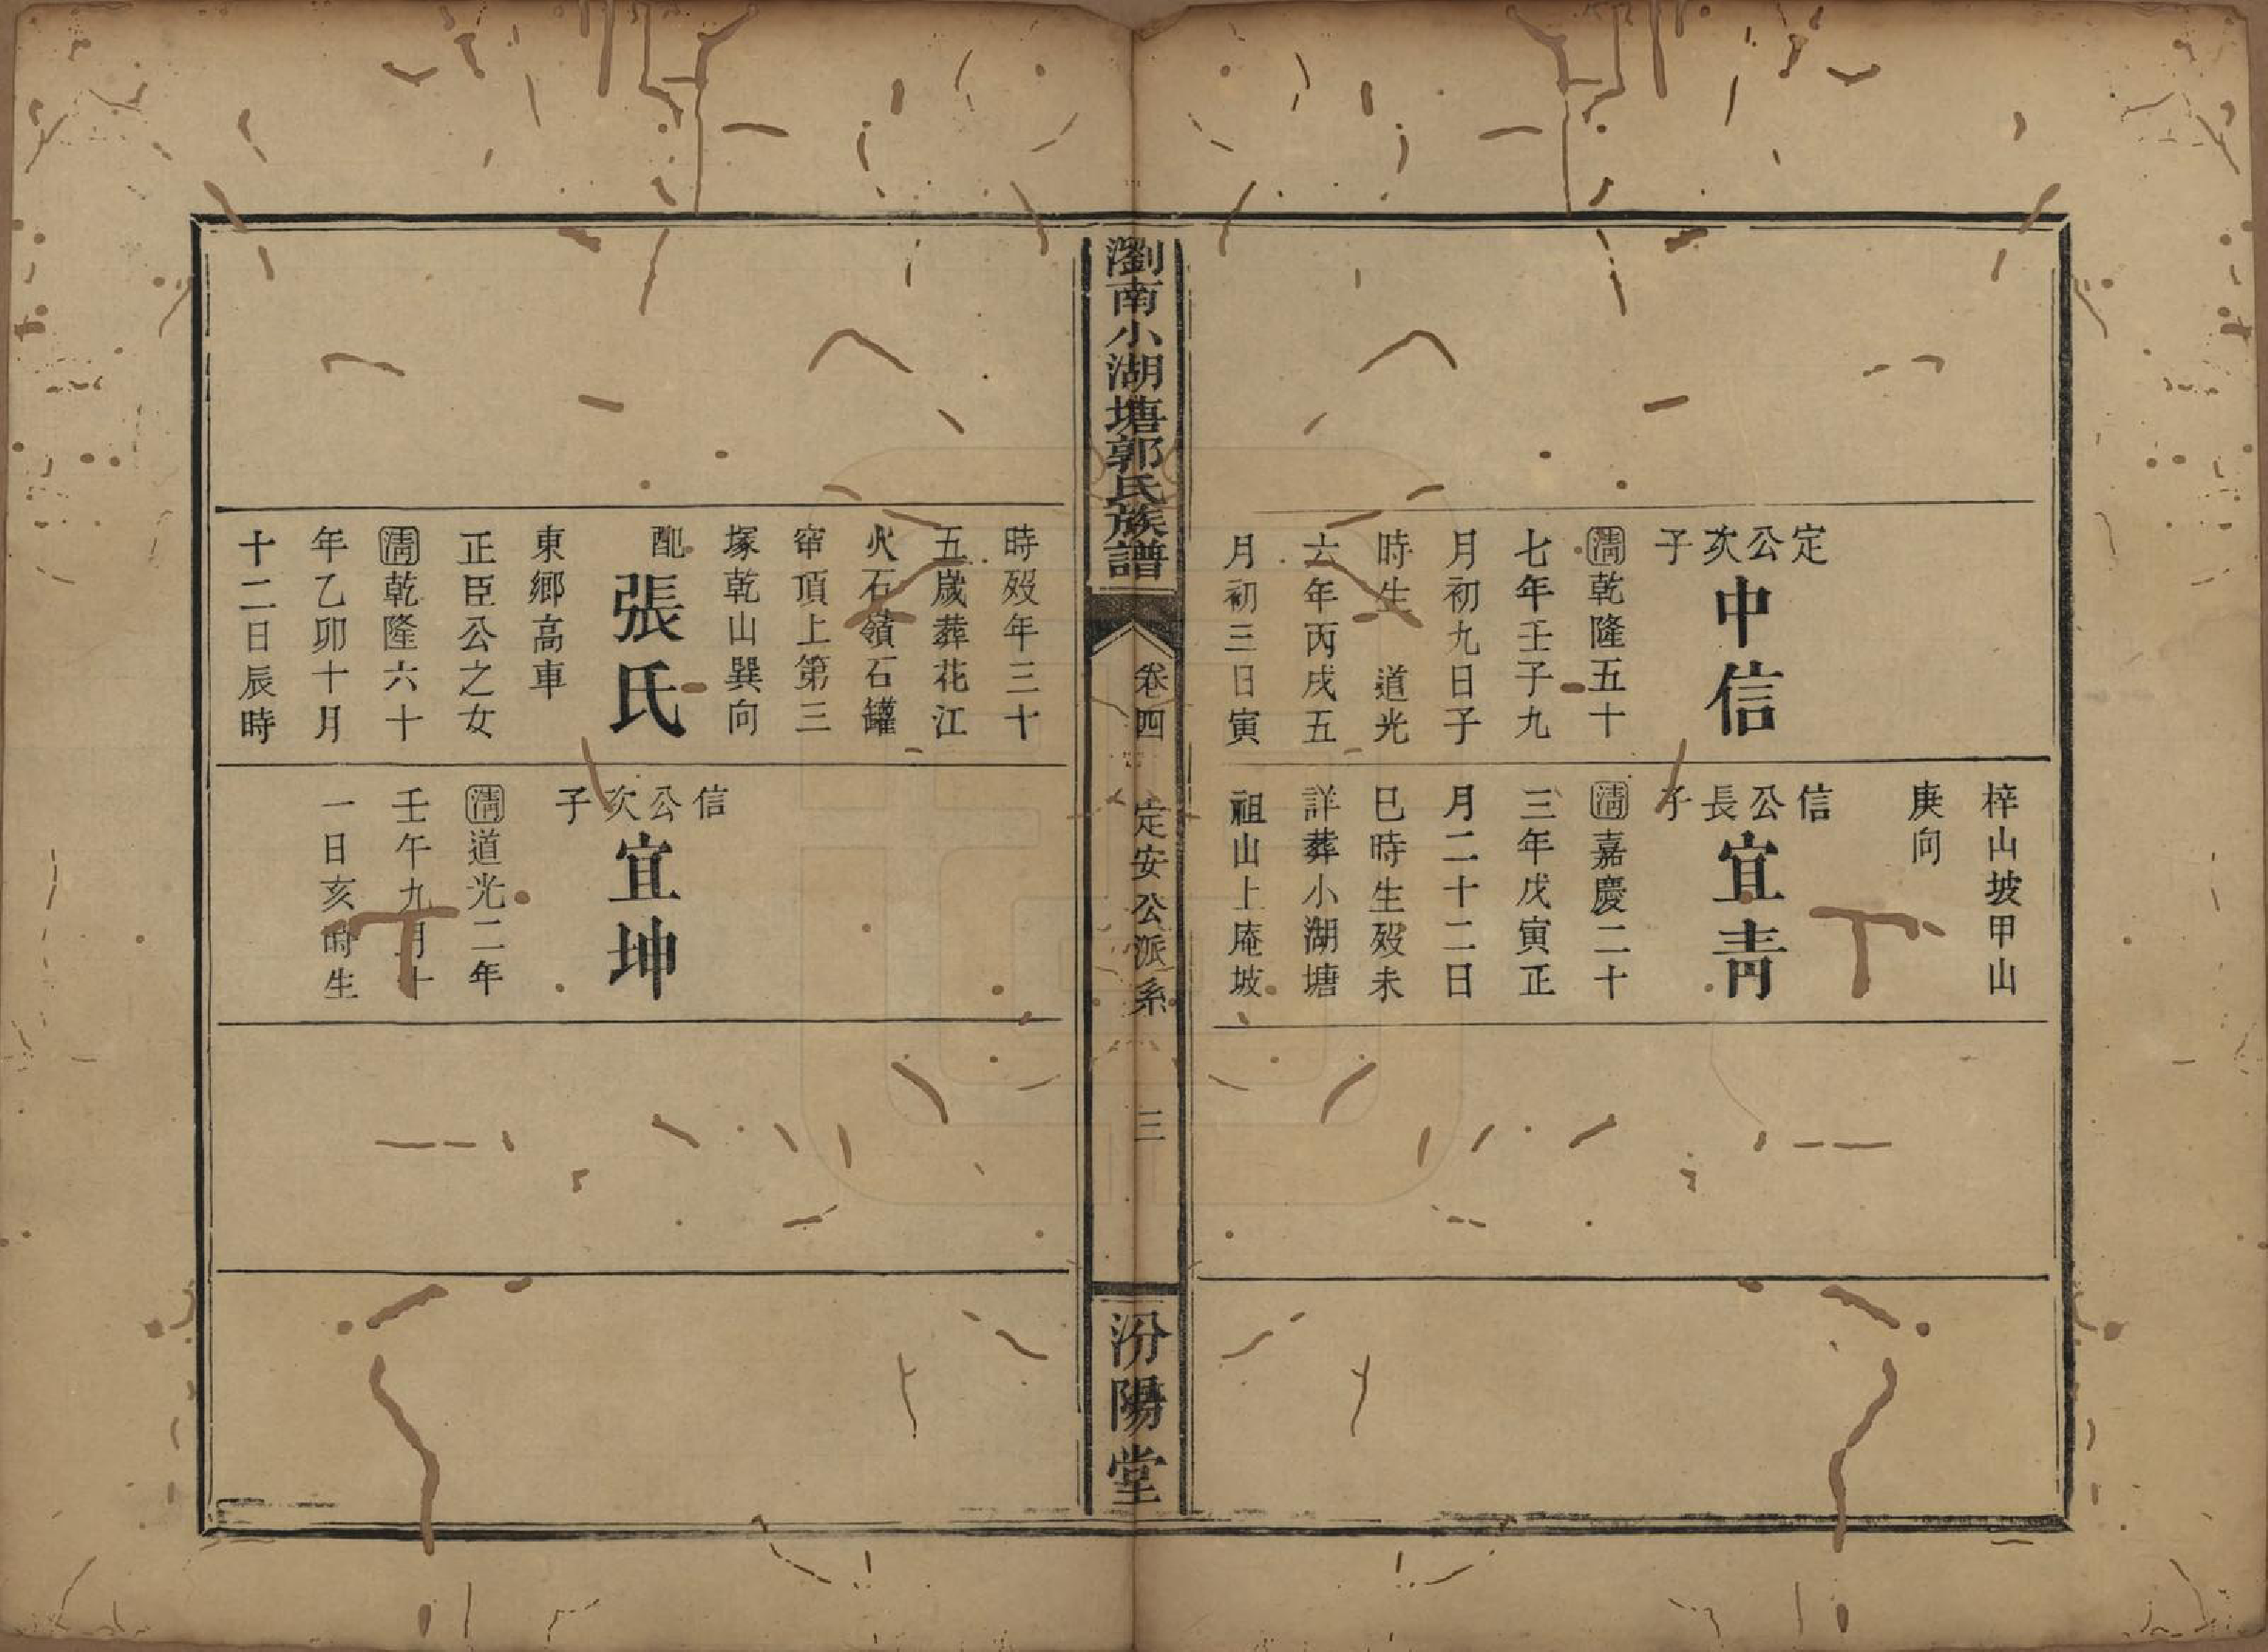 定公次子
中信
淸乾隆五十
七年壬子九
月初九日子
時生 道光
六年丙戌五
月初三日寅
梓山坡甲山
庚向
信公長子
宜靑
淸嘉慶二十
三年戊寅正
月二十二日
巳時生歿未
詳葬小湖塘
祖山上庵坡
瀏南小湖塘郭氏族譜
卷四
定安公派系
三
汾陽堂
時歿年三十
五歲葬花江
火石嶺石罐
窂頂上第三
塚乾山巽向
配張氏
東鄉高車
正臣公之女
淸乾隆六十
年乙卯十月
十二日辰時
信公次子
宜坤
淸道光二年
壬午九月十
一日亥時生